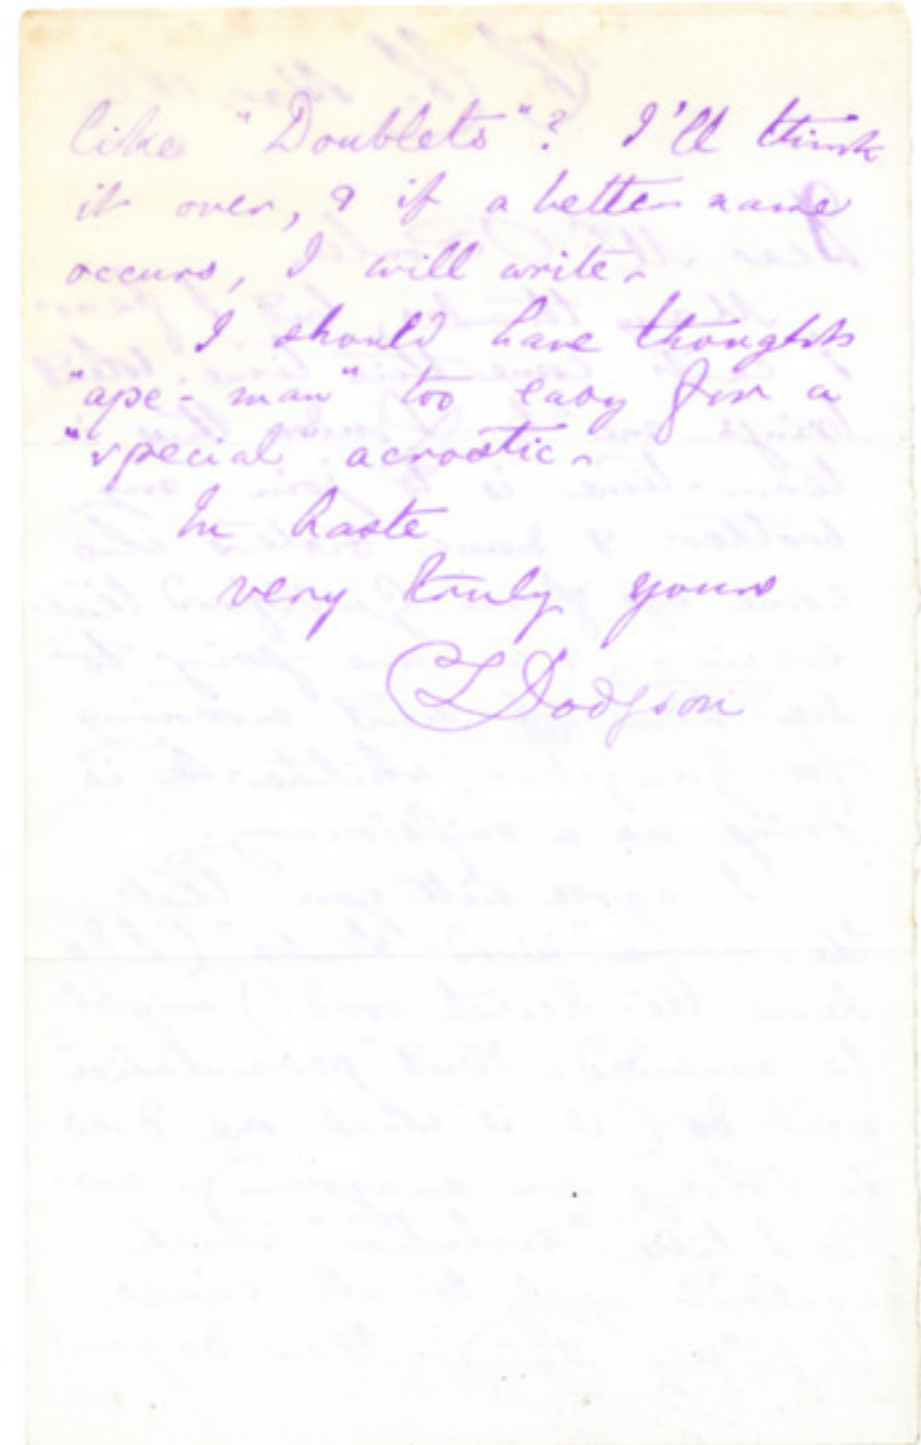 like "Doublets"? I'll think
it over, & if a better name
occurs, I will write.
I should have thought
"ape-man" too easy for a
"special acrostic.
In haste
very truly yours
CL Dodgson